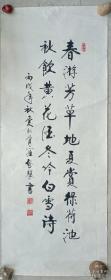 春游芳草地夏赏绿荷池
秋饮黄花酒冬吟白雪诗
丙戌年秋